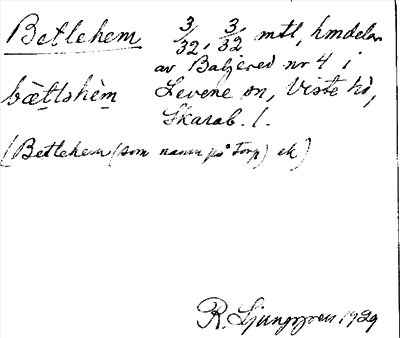 Betlehem 3/32, 3/32 mtl, hmdelar
av Baljered nr 4 i
bæ̀tlshèm Levene sn, Viste hd,
Skarab. l.
(Betlehem (som namn på torp) ek)
R. Ljunggren 1929